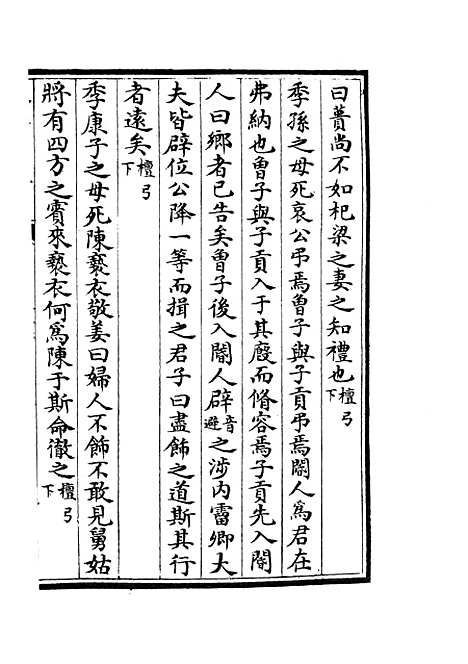 曰蕢尚不如杞梁之妻之知禮也檀弓下
季孫之母死哀公弔焉曾子與子貢弔焉閽人爲君在
弗納也曾子與子貢入于其廐而脩容焉子貢先入閽
人曰鄉者已告矣曾子後入閽人辟音避之涉內霤卿大
夫皆辟位公降一等而揖之君子曰盡飾之道斯其行
者遠矣檀弓下
季康子之母死陳褻衣敬姜曰婦人不飾不敢見舅姑
將有四方之賓來褻衣何爲陳于斯命徹之檀弓下